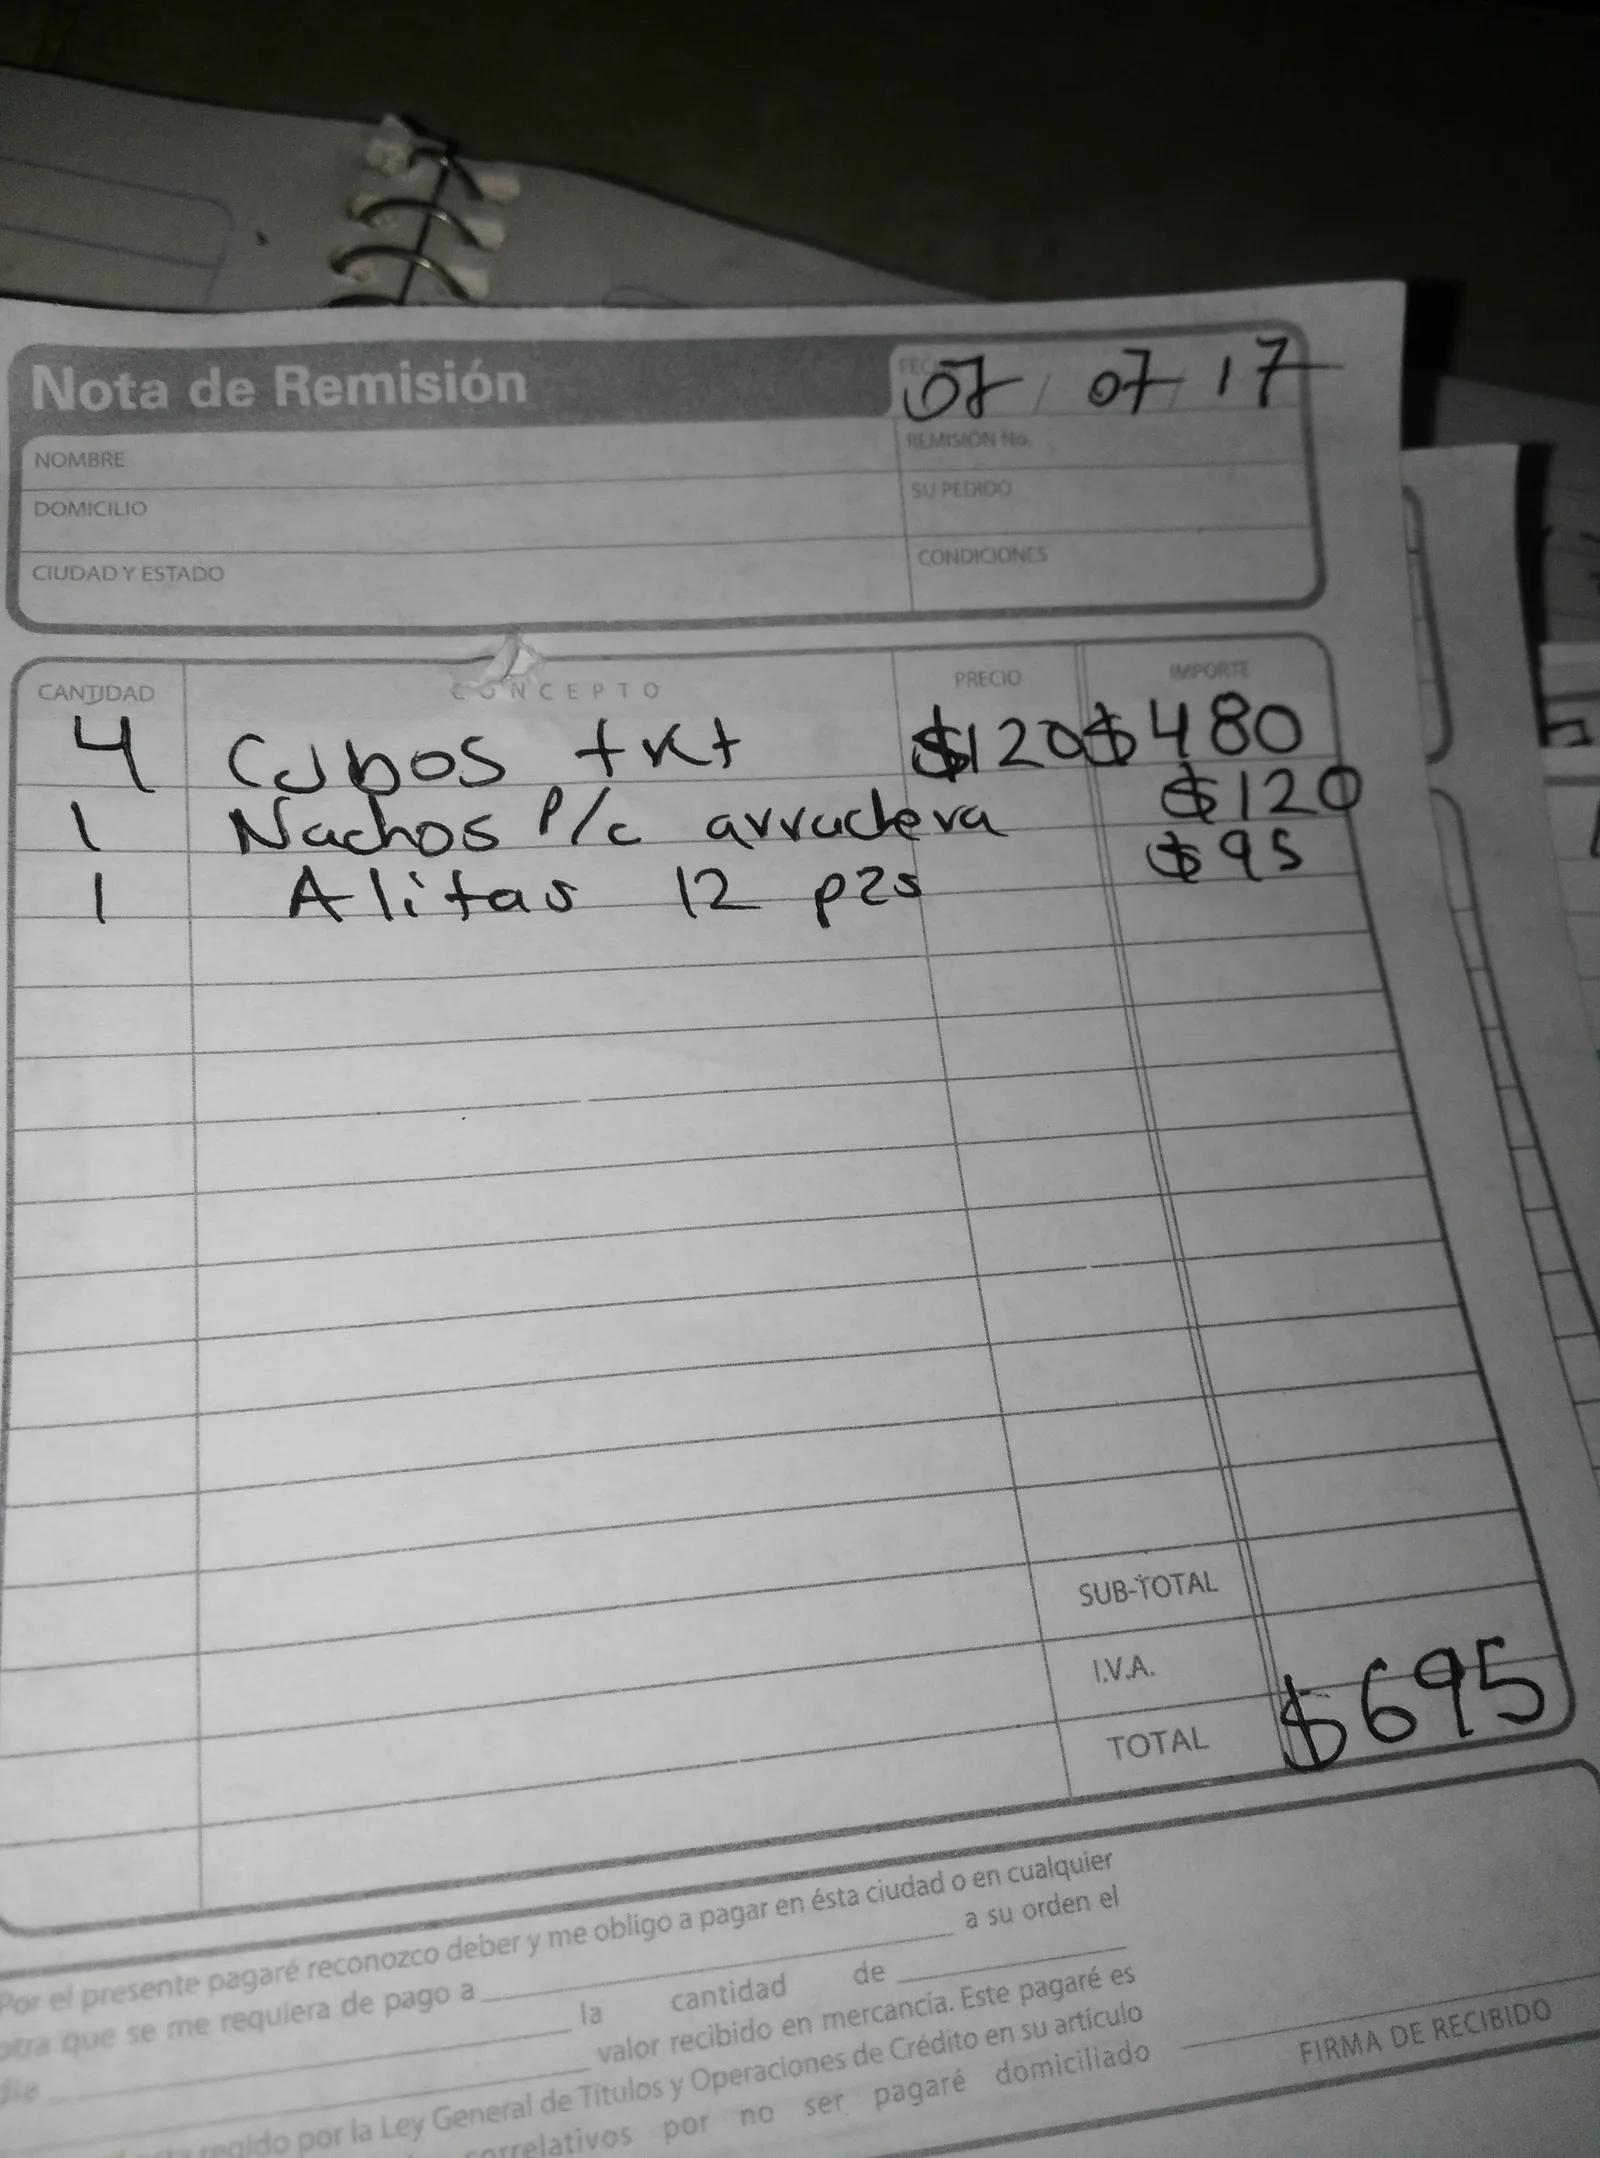 Nota de Remisión
07 / 07 / 17
NOMBRE
REMISIÓN No.
DOMICILIO
SU PEDIDO
CIUDAD Y ESTADO
CONDICIONES
CANTIDAD CONCEPTO PRECIO IMPORTE
4 Cubos tkt $120 $480
1 Nachos P/c arrachera $120
1 Alitas 12 pzs $95
SUB-TOTAL
I.V.A.
TOTAL $695
Por el presente pagaré reconozco deber y me obligo a pagar en ésta ciudad o en cualquier
otra que se me requiera de pago a a su orden el
día la cantidad de
valor recibido en mercancía. Este pagaré es
regido por la Ley General de Títulos y Operaciones de Crédito en su artículo
correlativos por no ser pagaré domiciliado
FIRMA DE RECIBIDO